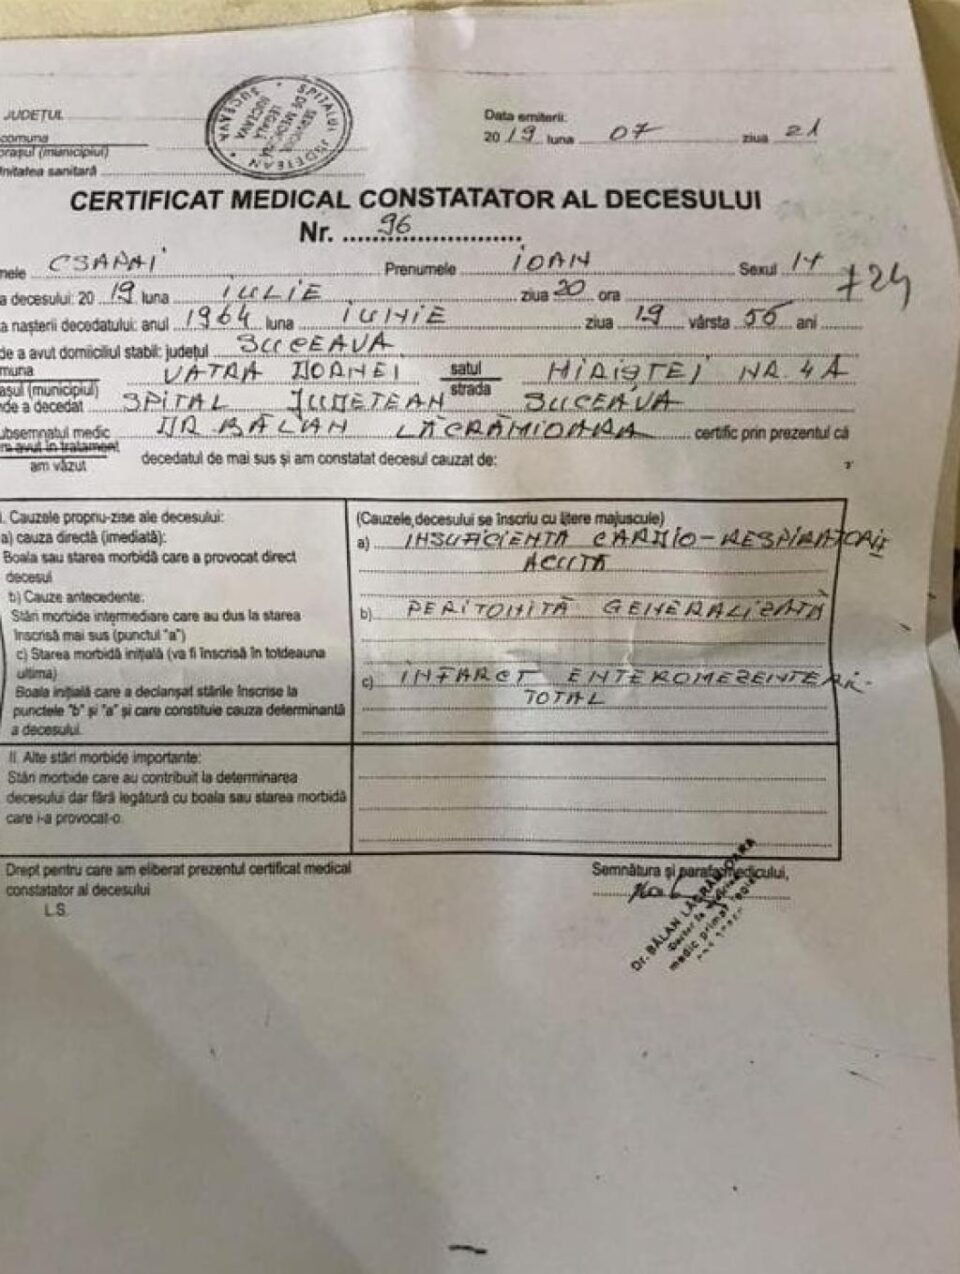 JUDEȚUL
comuna
orașul (municipiul)
Unitatea sanitară
SPITALUL JUDEȚEAN SUCEAVA
SERVICIUL DE MEDICINA LEGALA SUCEAVA
Data emiterii:
20 19 luna 07 ziua 21
CERTIFICAT MEDICAL CONSTATATOR AL DECESULUI
Nr. 96
mele CSAPAI Prenumele IOAN Sexul
724
a decesului: 20 19 luna IULIE ziua 20 ora
a nașterii decedatului: anul 1964 luna IUNIE ziua 19 vârsta 55 ani
de a avut domiciliul stabil: județul SUCEAVA
muna VATRA DORNEI satul
așul (municipiul) strada NR. 4A
nde a decedat SPITAL JUDETEAN SUCEAVA
ubsemnatul medic DR BĂLAN LĂCRĂMIOARA certific prin prezentul că
m avut în tratament
am văzut decedatul de mai sus și am constatat decesul cauzat de:
I. Cauzele propriu-zise ale decesului:
a) cauza directă (imediată):
Boala sau starea morbidă care a provocat direct
decesul
b) Cauze antecedente:
Stări morbide intermediare care au dus la starea
înscrisă mai sus (punctul "a")
c) Starea morbidă inițială (va fi înscrisă în totdeauna
ultima)
Boala inițială care a declanșat stările înscrise la
punctele "b" și "a" și care constituie cauza determinantă
a decesului.
(Cauzele decesului se înscriu cu litere majuscule)
a) INSUFICIENTA CARDIO-RESPIRATORIE
ACUTA
b) PERITONITĂ GENERALIZATĂ
c) INFARCT ENTEROMEZENTERI-
TOTAL
II. Alte stări morbide importante:
Stări morbide care au contribuit la determinarea
decesului dar fără legătură cu boala sau starea morbidă
care i-a provocat-o.
Drept pentru care am eliberat prezentul certificat medical
constatator al decesului
L.S.
Semnătura și parafa medicului,
Dr. BĂLAN LĂCRĂMIOARA
medic primar